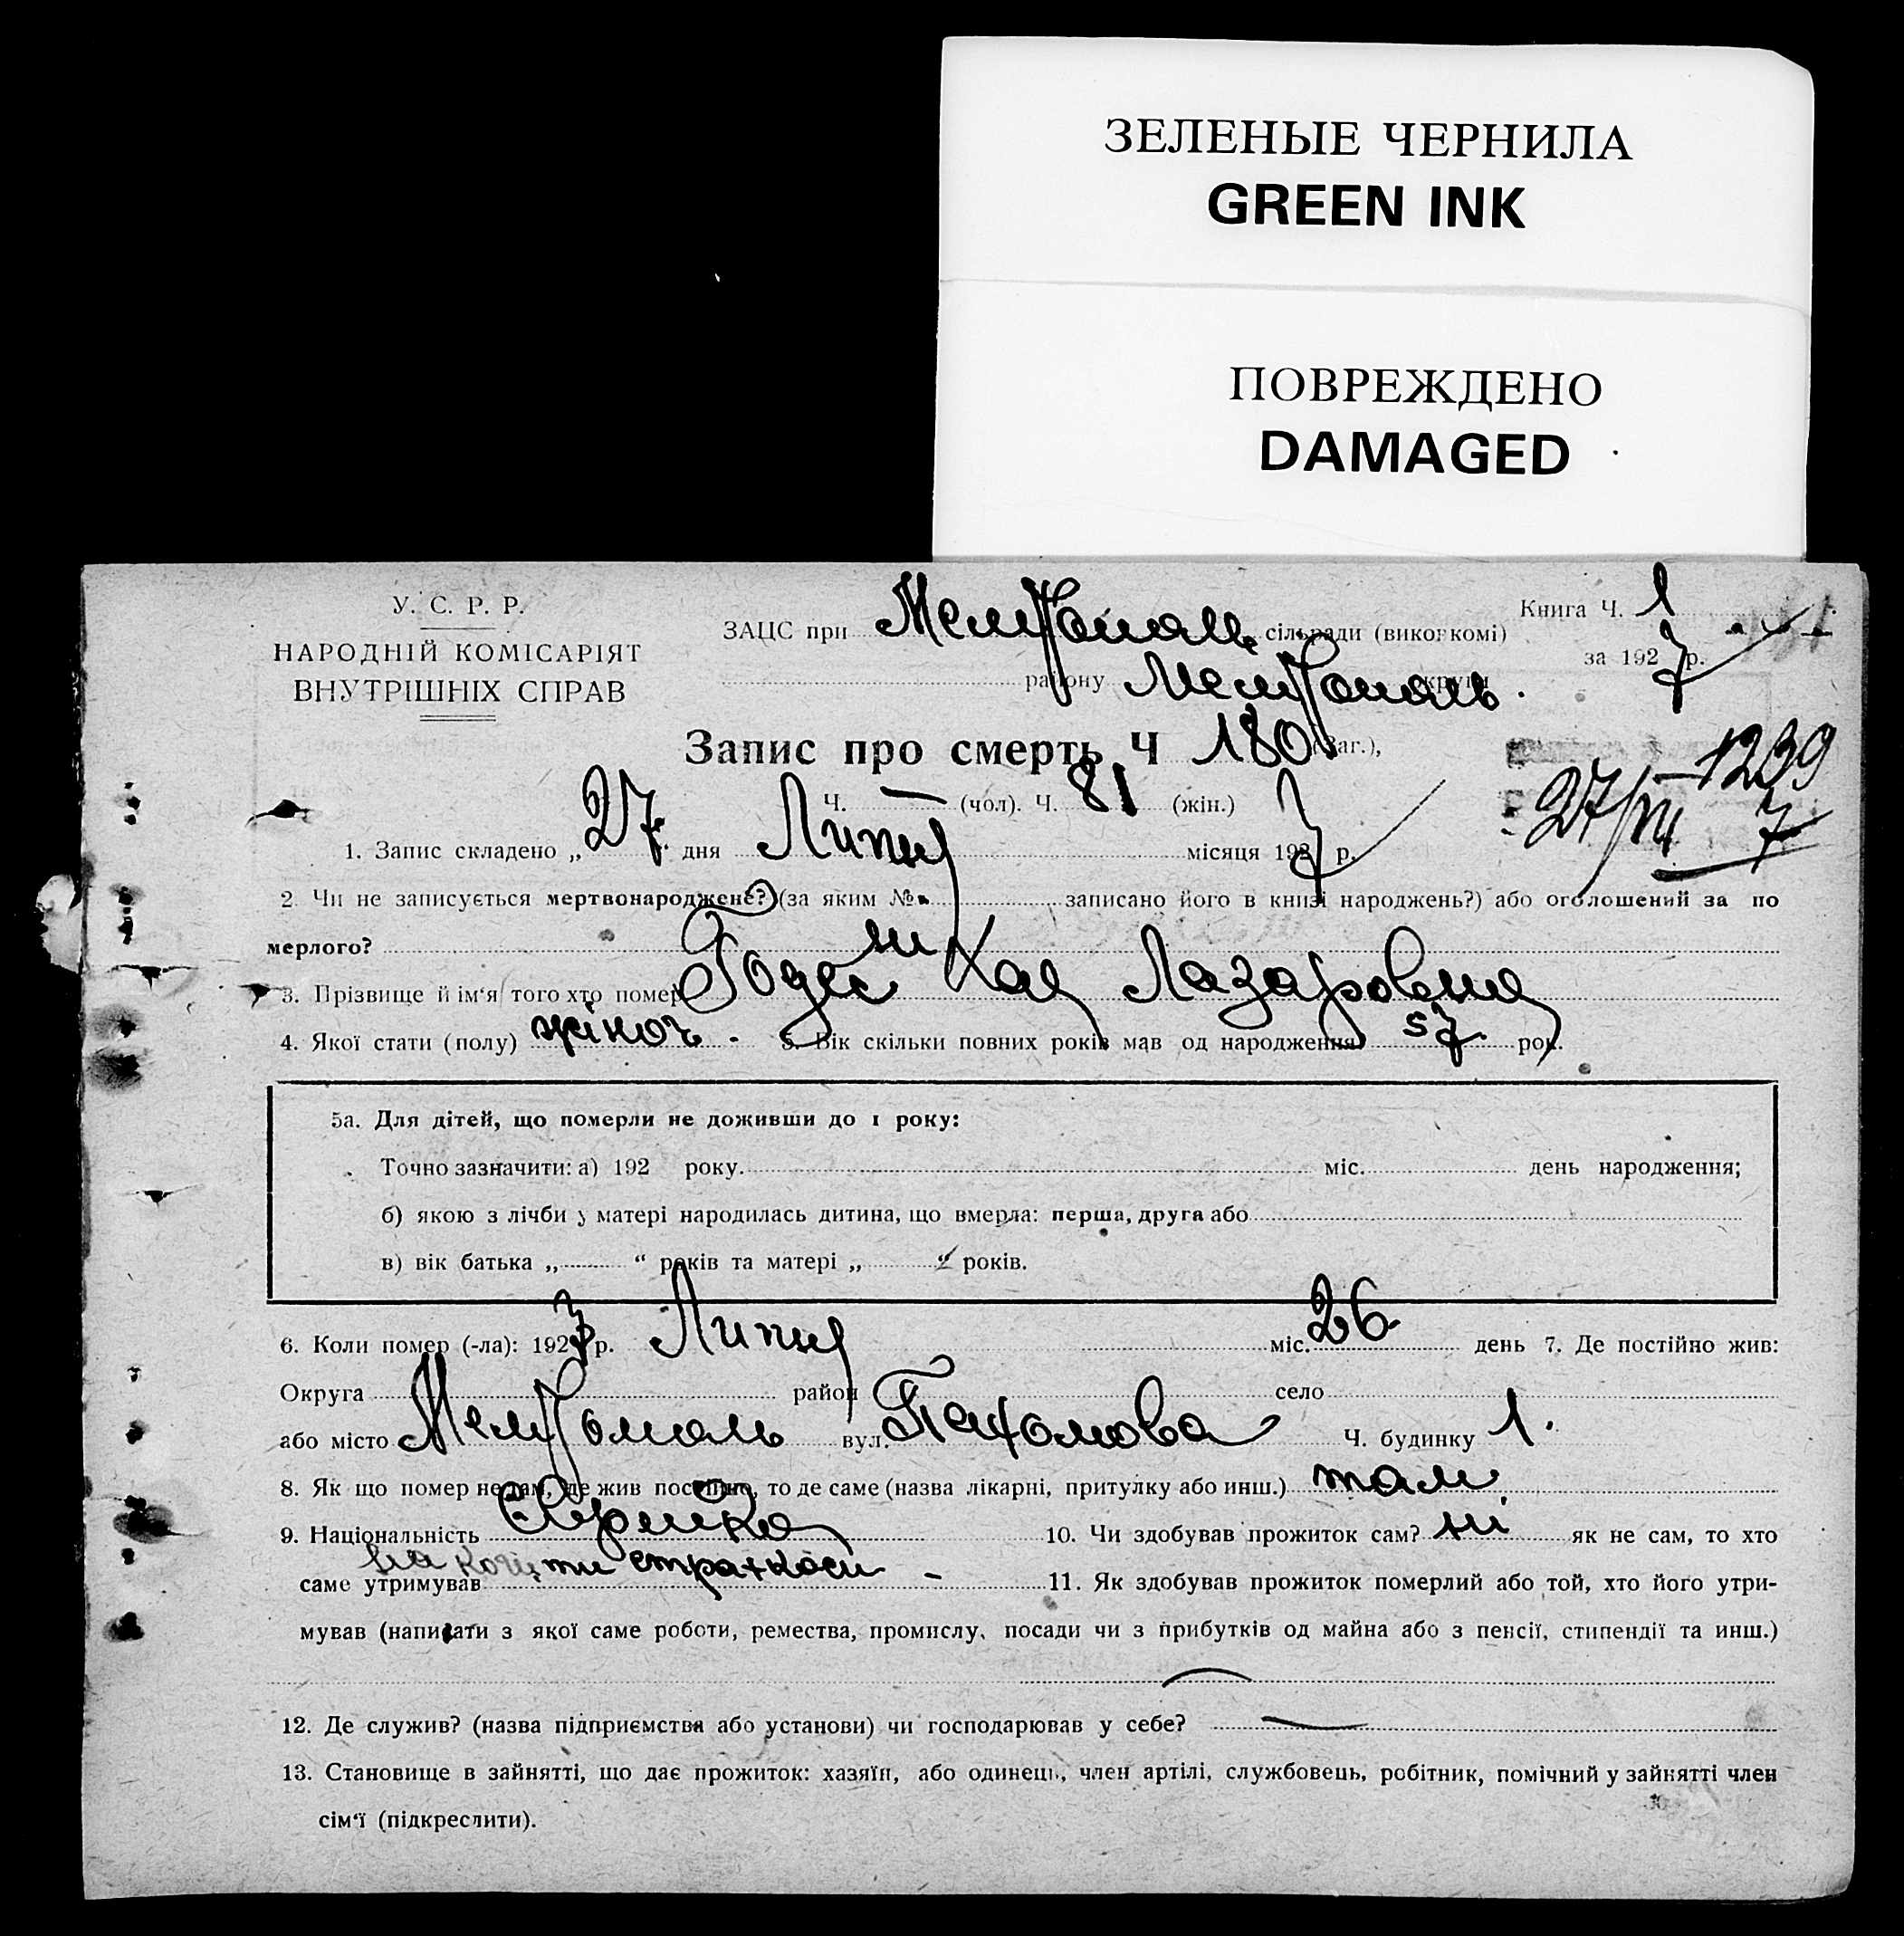 ЗЕЛЕНЫЕ ЧЕРНИЛА
GREEN INK
ПОВРЕЖДЕНО
DAMAGED
У. С. Р. Р.
НАРОДНІЙ КОМІСАРІЯТ
ВНУТРІШНІХ СПРАВ
ЗАЦС при Мелітополь сільради (виконкомі)
району Мелітополь округи
Книга Ч. 1
за 1927 р.
Запис про смерть Ч 180 (Заг.),
Ч. — (чол). Ч. 81 (жін.)
1239
27/VII 7
1. Запис складено „27 дня Липня місяця 1927 р.
2. Чи не записується мертвонароджене? (за яким № записано його в книзі народжень?) або оголошений за по
мерлого?
3. Прізвище й ім‘я того хто помер Хая Лазаровна
4. Якої стати (полу) жіноч. 5. Вік скільки повних років мав од народження 57 рок.
5а. Для дітей, що померли не доживши до 1 року:
Точно зазначити: а) 192 року. міс. день народження;
б) якою з лічби у матері народилась дитина, що вмерла: перша, друга або
в) вік батька „ “ років та матері „ “ років.
6. Коли помер (-ла): 1927 р. Липня міс. 26 день 7. Де постійно жив:
Округа район село
або місто Мелітополь вул. Пахомова Ч. будинку 1.
8. Як що помер не там, де жив постійно, то де саме (назва лікарні, притулку або инш.) там
9. Національність Єврейка 10. Чи здобував прожиток сам? ні як не сам, то хто
саме утримував на кошти страхкаси - 11. Як здобував прожиток померлий або той, хто його утри-
мував (написати з якої саме роботи, ремества, промислу, посади чи з прибутків од майна або з пенсії, стипендії та инш.)
12. Де служив? (назва підприємства або установи) чи господарював у себе? —
13. Становище в зайнятті, що дає прожиток: хазяїн, або одинець, член артілі, службовець, робітник, помічний у зайнятті член
сім‘ї (підкреслити).